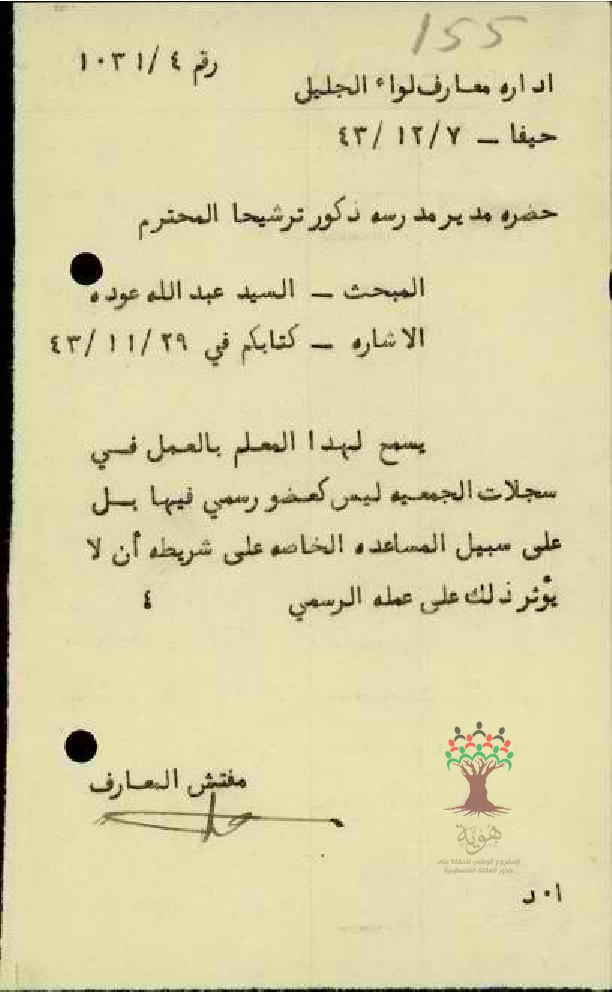 155
رقم ٤ /١٠٣١
اداره معارف لواء الجليل
حيفا – ١٢/٧ /٤٣
حضره مدير مدرسه ذكور ترشيحا المحترم
المبحث – السيد عبد الله عوده
الاشاره – كتابكم في ١١/٢٩ /٤٣
يسمح لهذا المعلم بالعمل في
سجلات الجمعيه ليس كعضو رسمي فيها بل
على سبيل المساعده الخاصه على شريطه أن لا
يؤثر ذلك على عمله الرسمي ٤
مفتش المعارف
هُويّة
المشروع الوطني للحفاظ على
جذور العائلة الفلسطينية
ا٠د